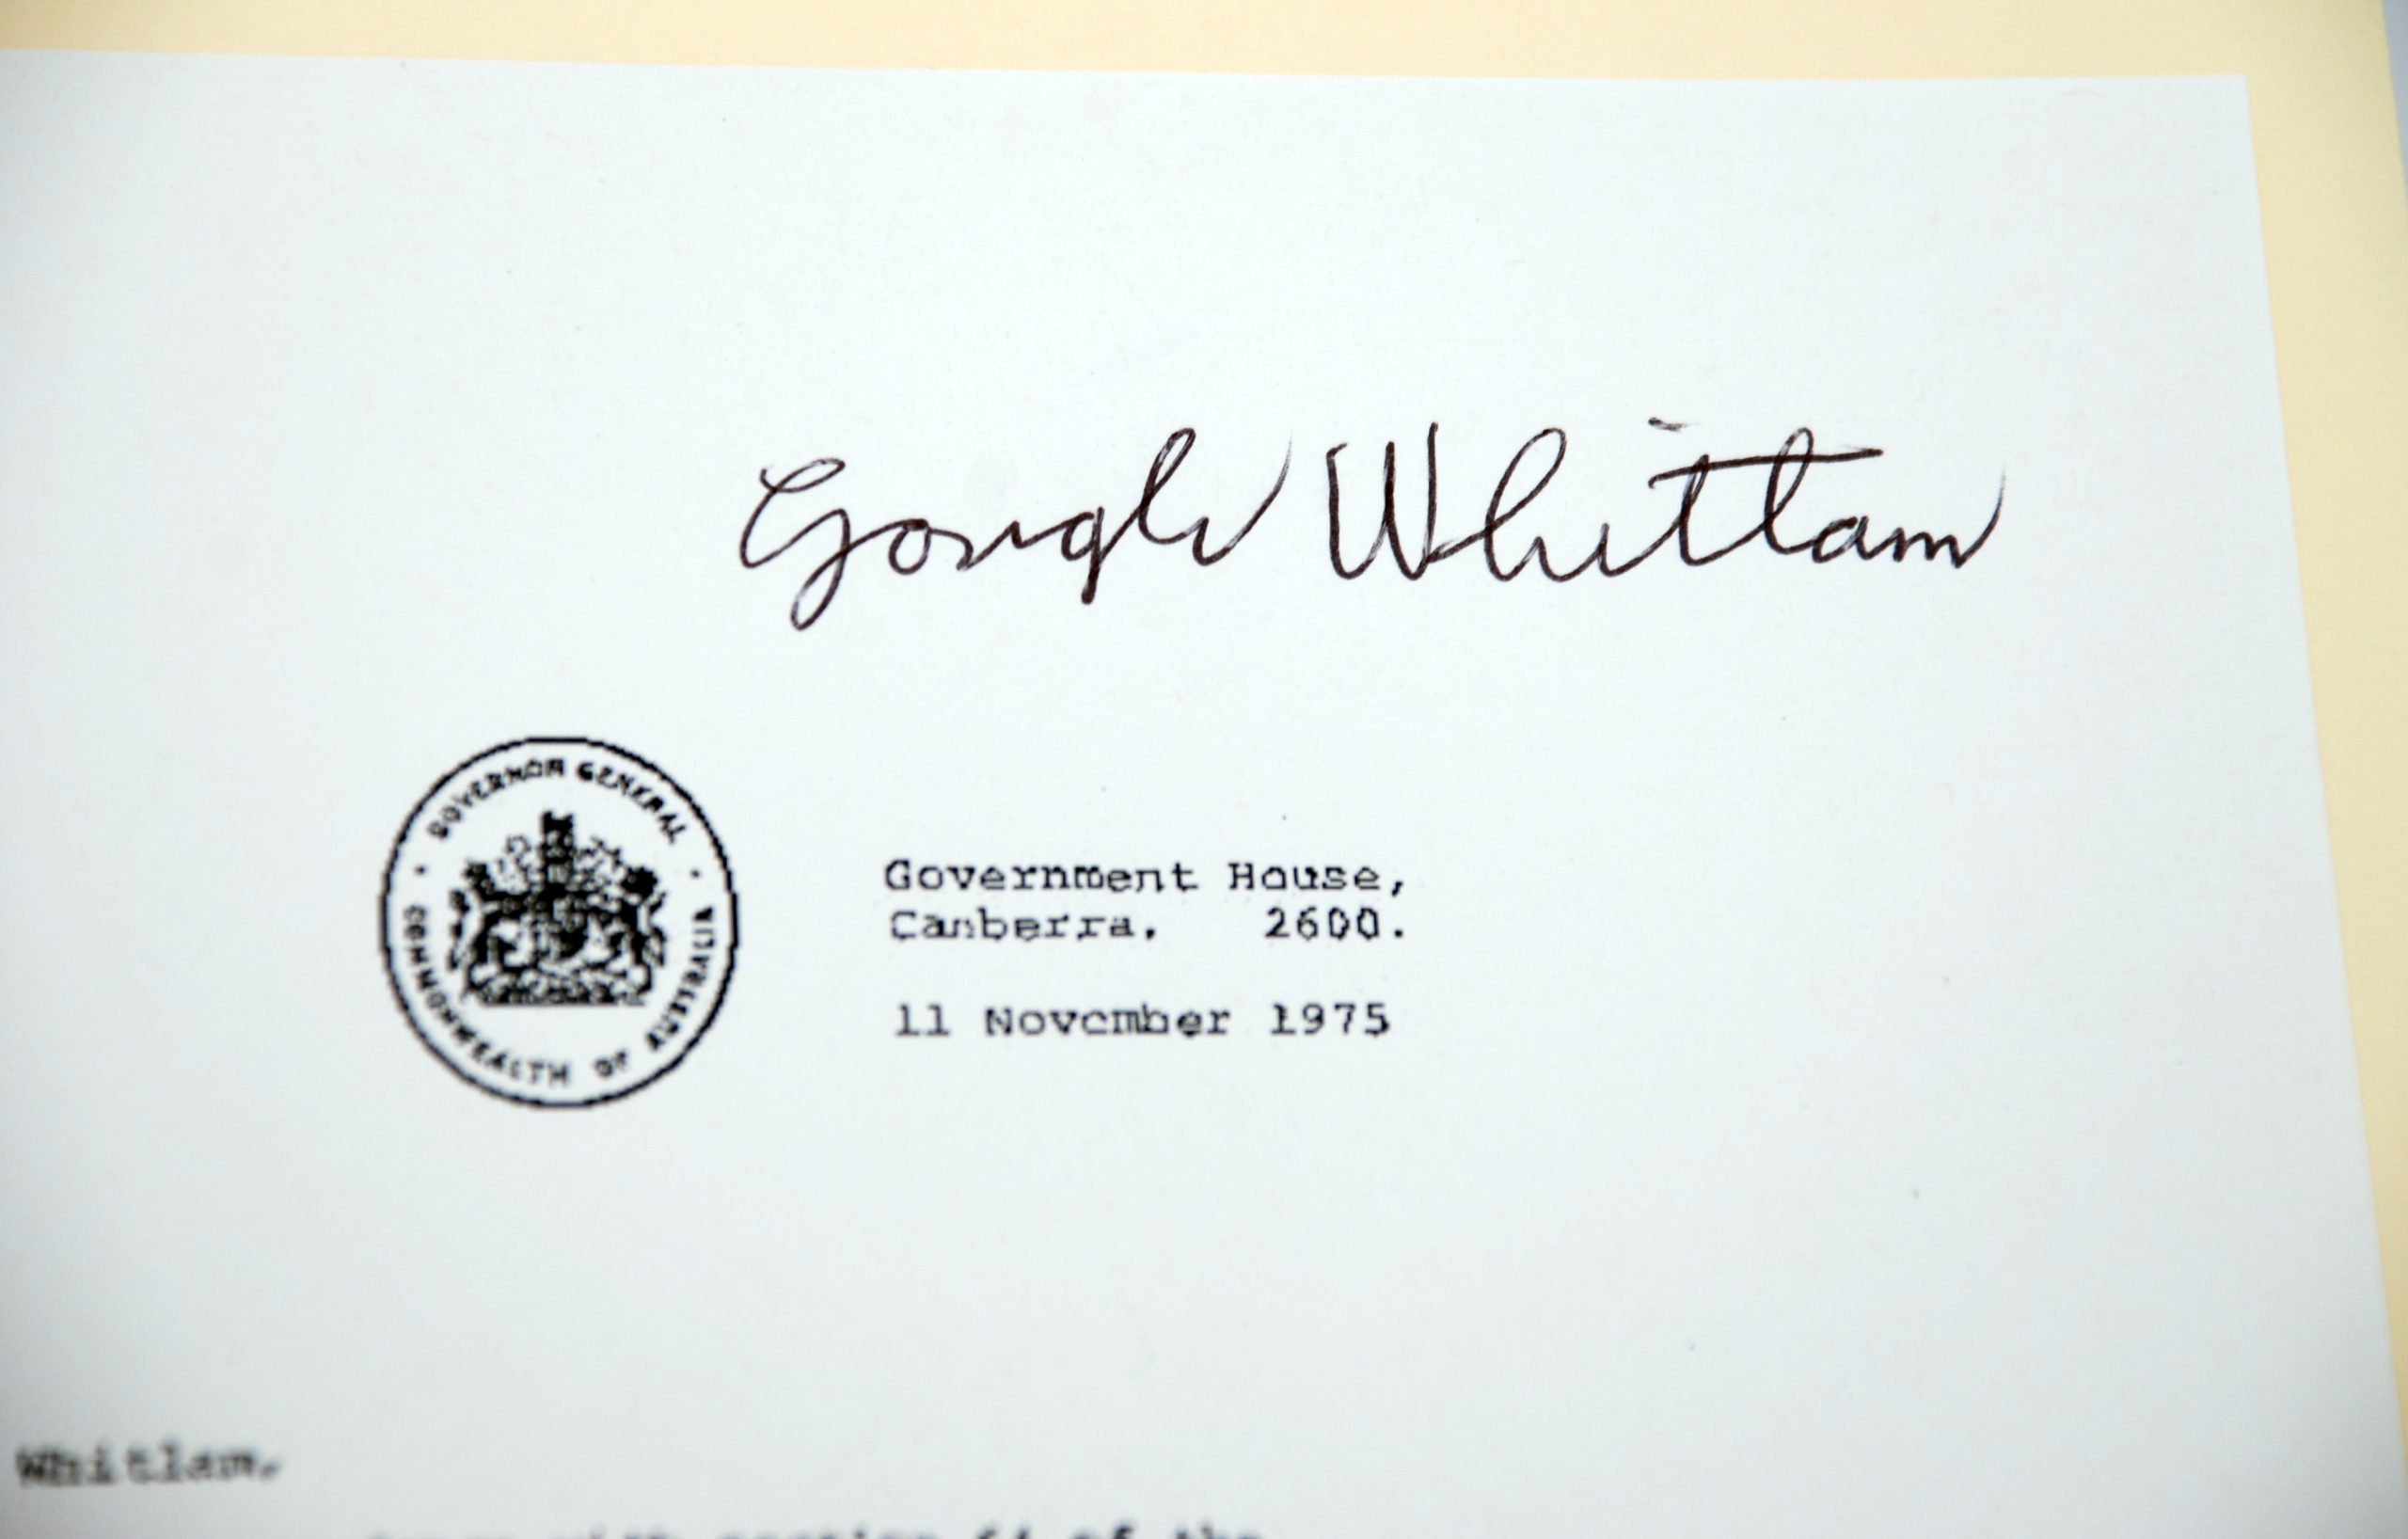 Gough Whitlam
GOVERNOR GENERAL
COMMONWEALTH OF AUSTRALIA
Government House,
Canberra. 2600.
11 November 1975
Whitlam.
with section 64 of the